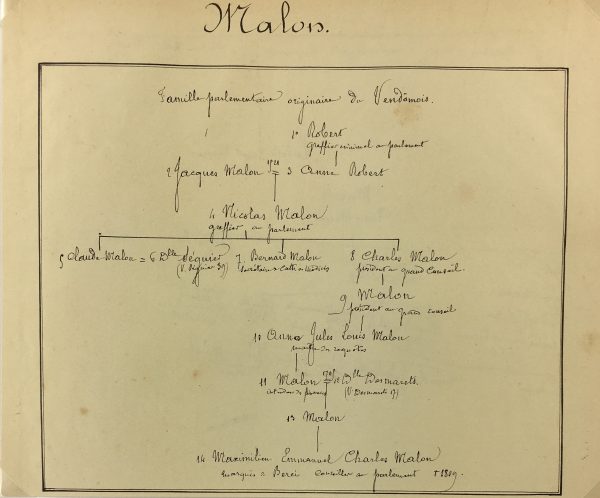 Malon.
Famille parlementaire originaire du Vendômois.
1° Robert
greffier criminel au parlement
2 Jacques Malon = 3 Anne Robert
4 Nicolas Malon
greffier au parlement
5 Claude Malon = 6 Dlle Séguier 7 Bernard Malon 8 Charles Malon
(V. Séguier 39) secrétaire président au grand Conseil.
9 Malon
président au grand conseil
10 Anne Jules Louis Malon
maître des requêtes
11 Malon = Dlle Desmarets.
(V. Desmarets 17)
13 Malon
14 Maximilien Emmanuel Charles Malon
marquis de Berci conseiller au parlement † 1809.